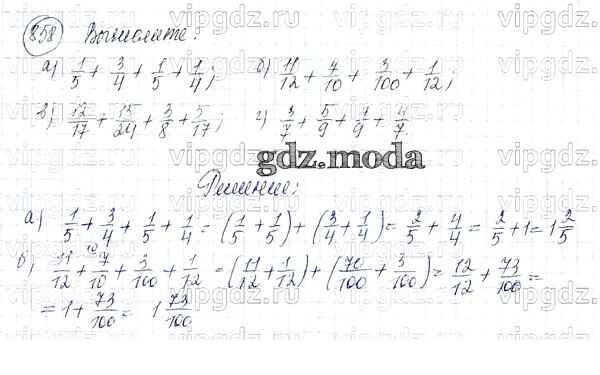 858 Вычислите:
а) 1/5 + 3/4 + 1/5 + 1/4; б) 11/12 + 7/10 + 3/100 + 1/12;
в) 12/17 + 15/24 + 3/8 + 5/17; г) 3/7 + 5/9 + 7/9 + 4/7.
gdz.moda
Решение:
а) 1/5 + 3/4 + 1/5 + 1/4 = (1/5 + 1/5) + (3/4 + 1/4) = 2/5 + 4/4 = 2/5 + 1 = 1 2/5
б) 11/12 + 7/10 + 3/100 + 1/12 = (11/12 + 1/12) + (70/100 + 3/100) = 12/12 + 73/100 =
= 1 + 73/100 = 1 73/100